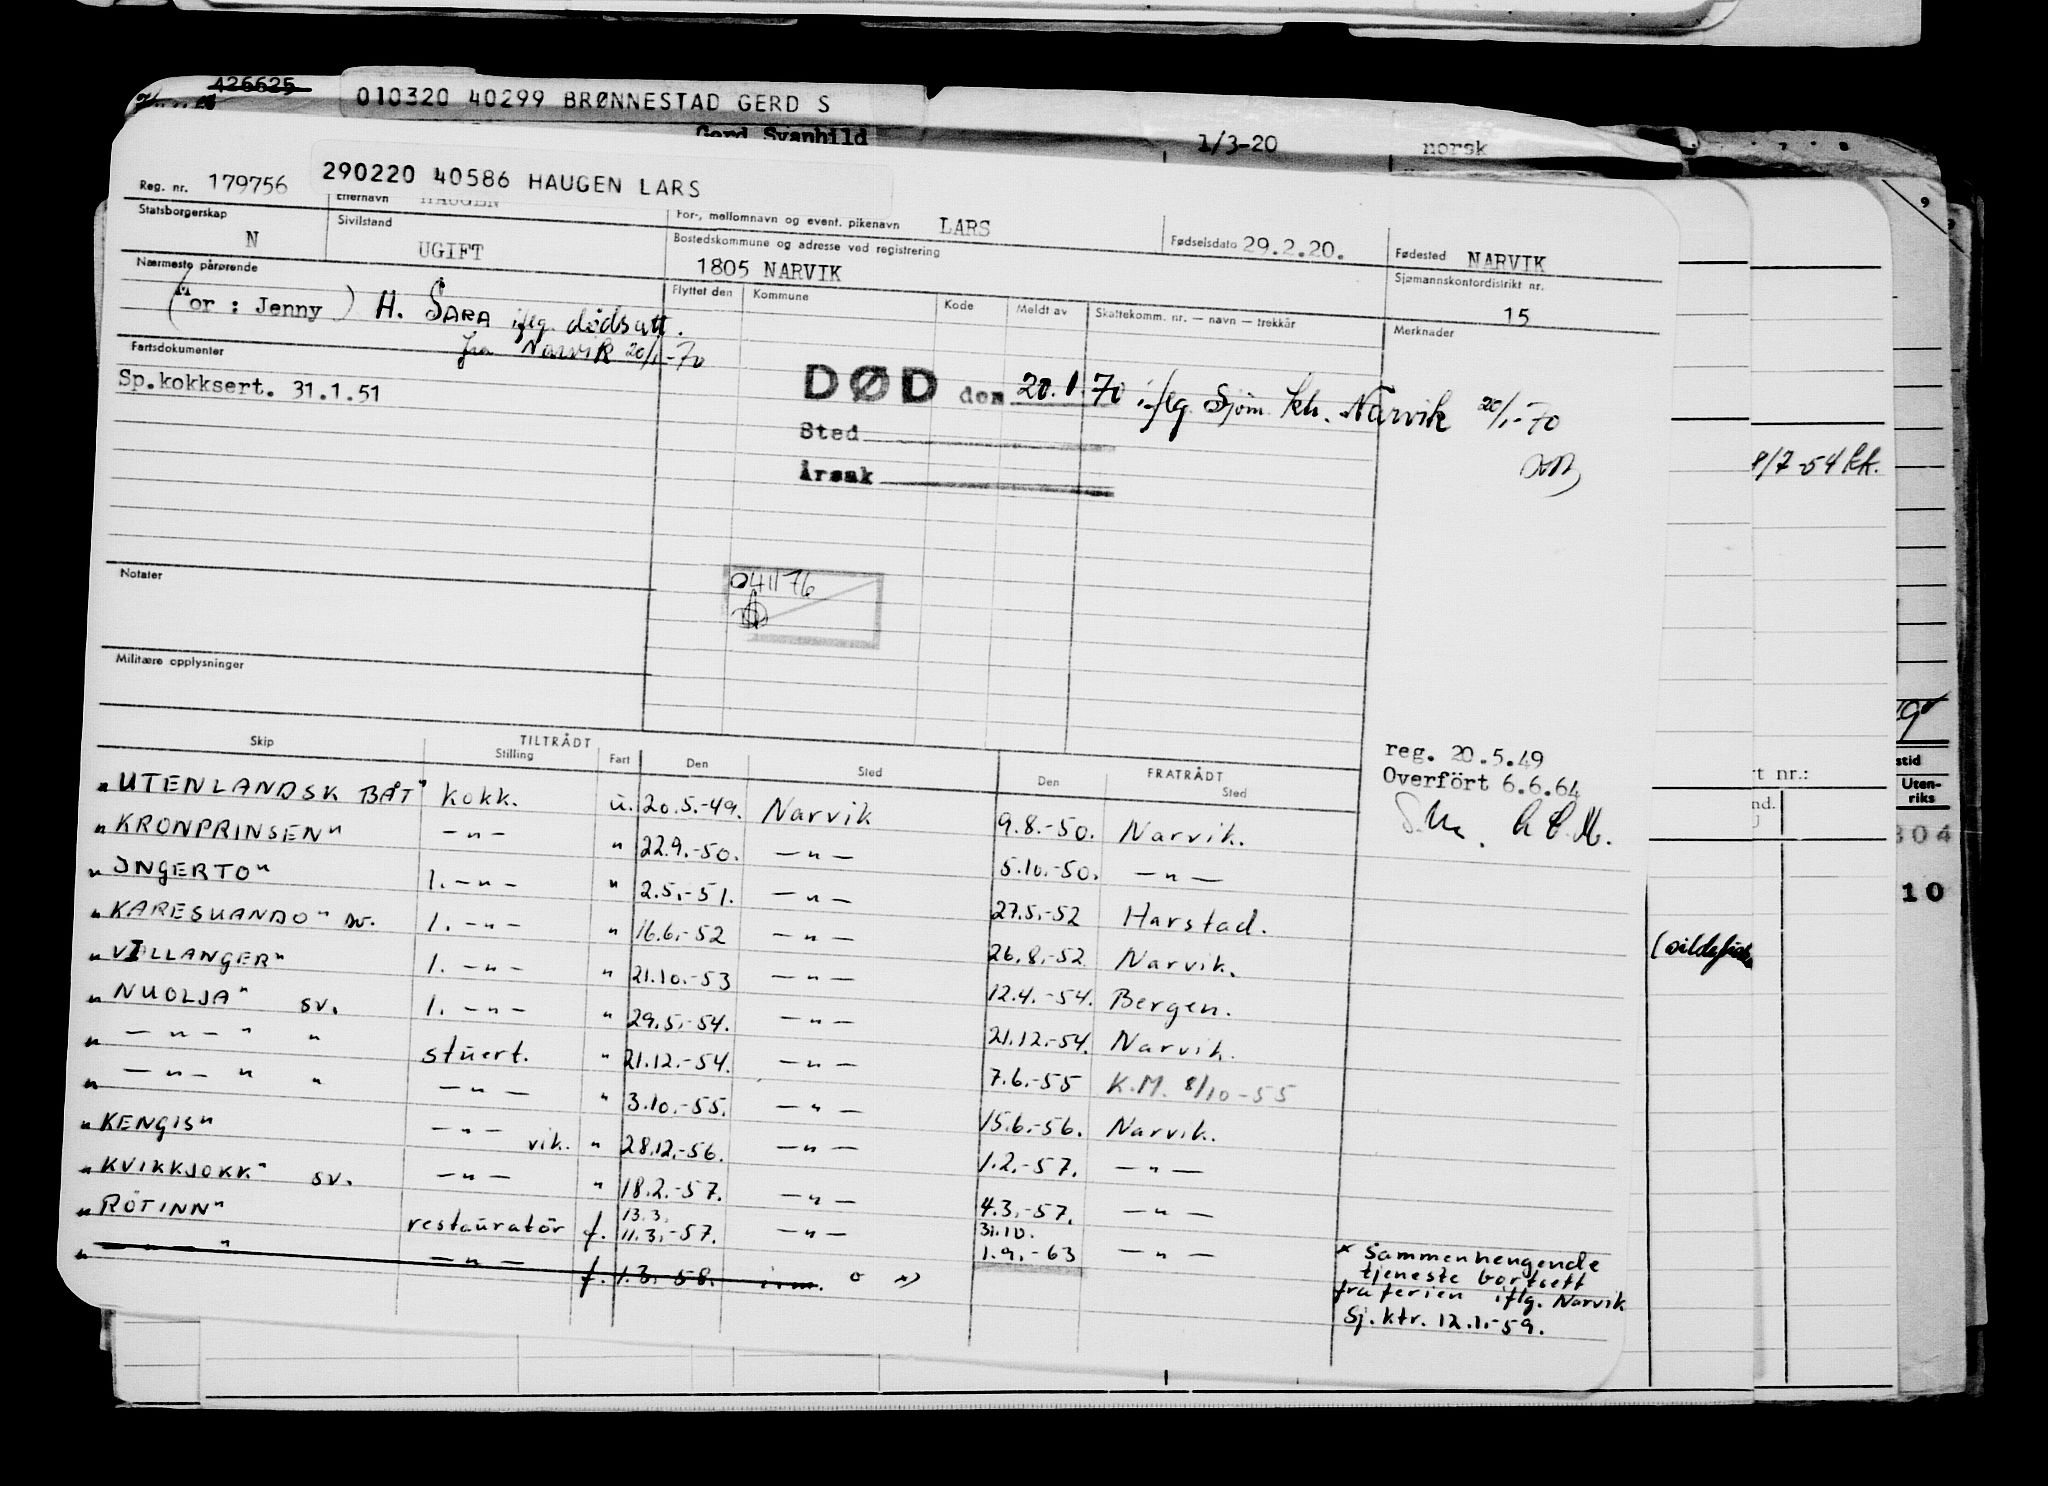 A26625
010320 40299 BRØNNESTAD GERD S
Gerd Svanhild 1/3-20 norsk
290220 40586 HAUGEN LARS
Reg. nr. 179756 Etternavn HAUGEN For-, mellomnavn og event. pikenavn LARS Fødselsdato 29.2.20. Fødested NARVIK
Statsborgerskap N Sivilstand UGIFT Bostedskommune og adresse ved registrering 1805 NARVIK Sjømannskontordistrikt nr. 15
Nærmeste pårørende Flyttet den Kommune Kode Meldt av Skattekomm. nr. — navn — trekkår Merknader
(Mor : Jenny) H. SARA iflg. dødsatt.
fra Narvik 20/1-70
Fartsdokumenter
Sp.kokksert. 31.1.51
DØD den 20.1.70 iflg. Sjøm. kh. Narvik 20/1-70
Sted
Årsak
8/7-54 kk.
Notater
041176
Militære opplysninger
reg. 20.5.49
Overført 6.6.64
Skip TILTRÅDT Stilling Fart Den Sted FRATRÅDT Den Sted
"UTENLANDSK BÅT" kokk. u. 20.5.-49. Narvik 9.8.-50. Narvik.
"KRONPRINSEN" —"— " 22.9.-50. —"— 5.10.-50. —"—
"INGERTO" 1. —"— " 2.5.-51. —"— 27.5.-52 Harstad.
"KARESUANDO" sv. 1. —"— " 16.6.-52 —"— 26.8.-52 Narvik.
"VILLANGER" 1. —"— " 21.10.-53 —"— 12.4.-54. Bergen.
"NUOLJA" sv. 1. —"— " 29.5.-54. —"— 21.12.-54. Narvik.
"—"—" " stuert. " 21.12.-54. —"— 7.6.-55 K.M. 8/10-55
"—"—" " —"— " 3.10.-55. —"— 15.6.-56. Narvik.
"KENGIS" —"— vik. " 28.12.-56. —"— 1.2.-57. —"—
"KVIKKJOKK" sv. —"— " 18.2.-57. —"— 4.3.-57. —"—
"ROTINN" restauratør f. 13.3. 11.3.-57. —"— 31.10. 1.9.-63 —"—
"—"—" —"— f. 1.3.-58.
* Sammenhengende
tjeneste bortsett
fra ferien iflg. Narvik
Sj.ktr. 12.1.-59.
rt nr.:
nd.
stid
Uten-
riks
304
10
9